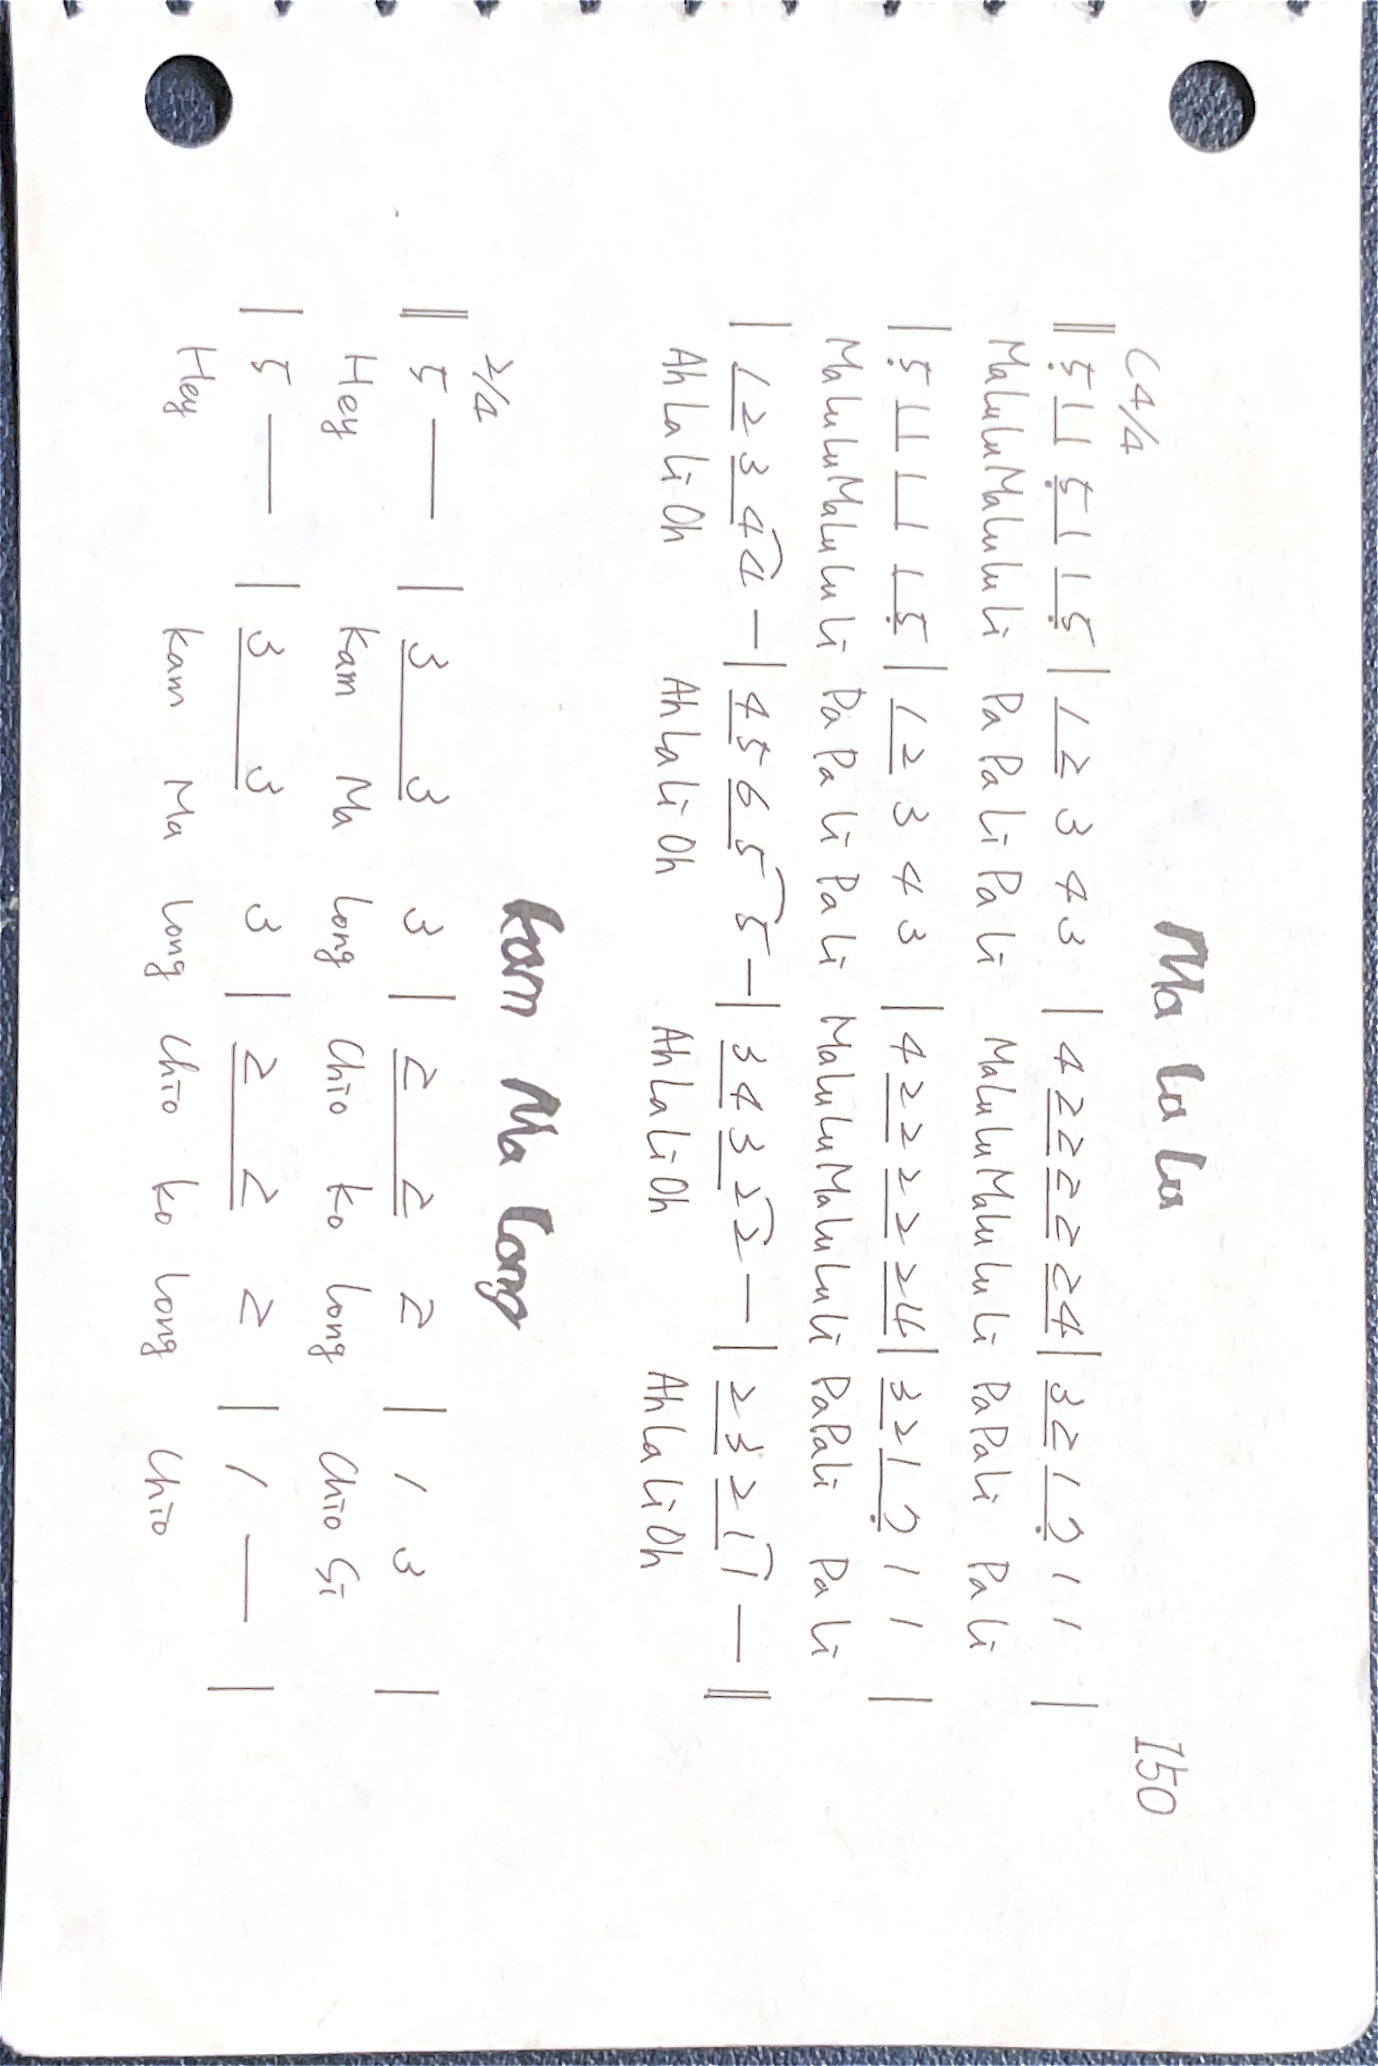 Ma La Lu
150
C 4/4
‖ 5̣ 1 1 5̣ 1 1 5̣ | 1 2 3 4 3 | 4 2 2 2 2 2 4 | 3 2 1 7̣ 1 1 |
Ma Lu Lu Ma Lu Lu Li Pa Pa Li Pa Li Ma Lu Lu Ma Lu Lu Li Pa Pa Li Pa Li
| 5̣ 1 1 1 1 1 5̣ | 1 2 3 4 3 | 4 2 2 2 2 2 4 | 3 2 1 7̣ 1 1 |
Ma Lu Lu Ma Lu Lu Li Pa Pa Li Pa Li Ma Lu Lu Ma Lu Lu Li Pa Pa Li Pa Li
| 1 2 3 4 4 — | 4 5 6 5 5 — | 3 4 3 2 2 — | 2 3 2 1 1 — ‖
Ah La Li Oh Ah La Li Oh Ah La Li Oh Ah La Li Oh
Kam Ma Long
2/4
‖ 5 — | 3 3 3 | 2 2 2 | 1 3 |
Hey Kam Ma Long Chio Ko Long Chio Si
| 5 — | 3 3 3 | 2 2 2 | 1 — |
Hey Kam Ma Long Chio Ko Long Chio